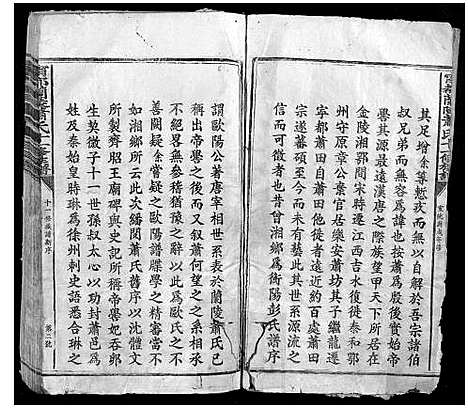 其足增余尊慙攷而無以自解於吾宗諸伯
叔兄弟而無容為諱也按蕭為殷後實始帝
嚳其源最遠漢唐之際族望甲天下所居自
金陵湘鄂間宋時遷江西吉水復徙泰和鄂
州守原章公棄官居樂安蕭坊其子繼龍遷
新田他徙者自蕭田他徙者遠近約百處蕭田
宗遂蕃碩至今而未有艾此其世系源流之
信而可徵者也昔曾湘鄉為衡陽彭氏譜序
謂歐陽公著唐宰相世系表於蘭陵蕭氏已
稱出帝嚳之後而又敘蕭何望之之系相承
畧無參稽猶豫之辭此以為歐氏之不
善闕疑余嘗疑之歐陽譜牒學之精審當不
如湘鄉所云此又讀蕭氏舊譜乃
所製齊昭王廟碑與史記所稱帝嚳妃吞卵
生契微子十一世孫叔大心以功封蕭邑為
姓及秦始皇時琳為徐州刺史語悉合琳之
十一修族譜新序
第二號